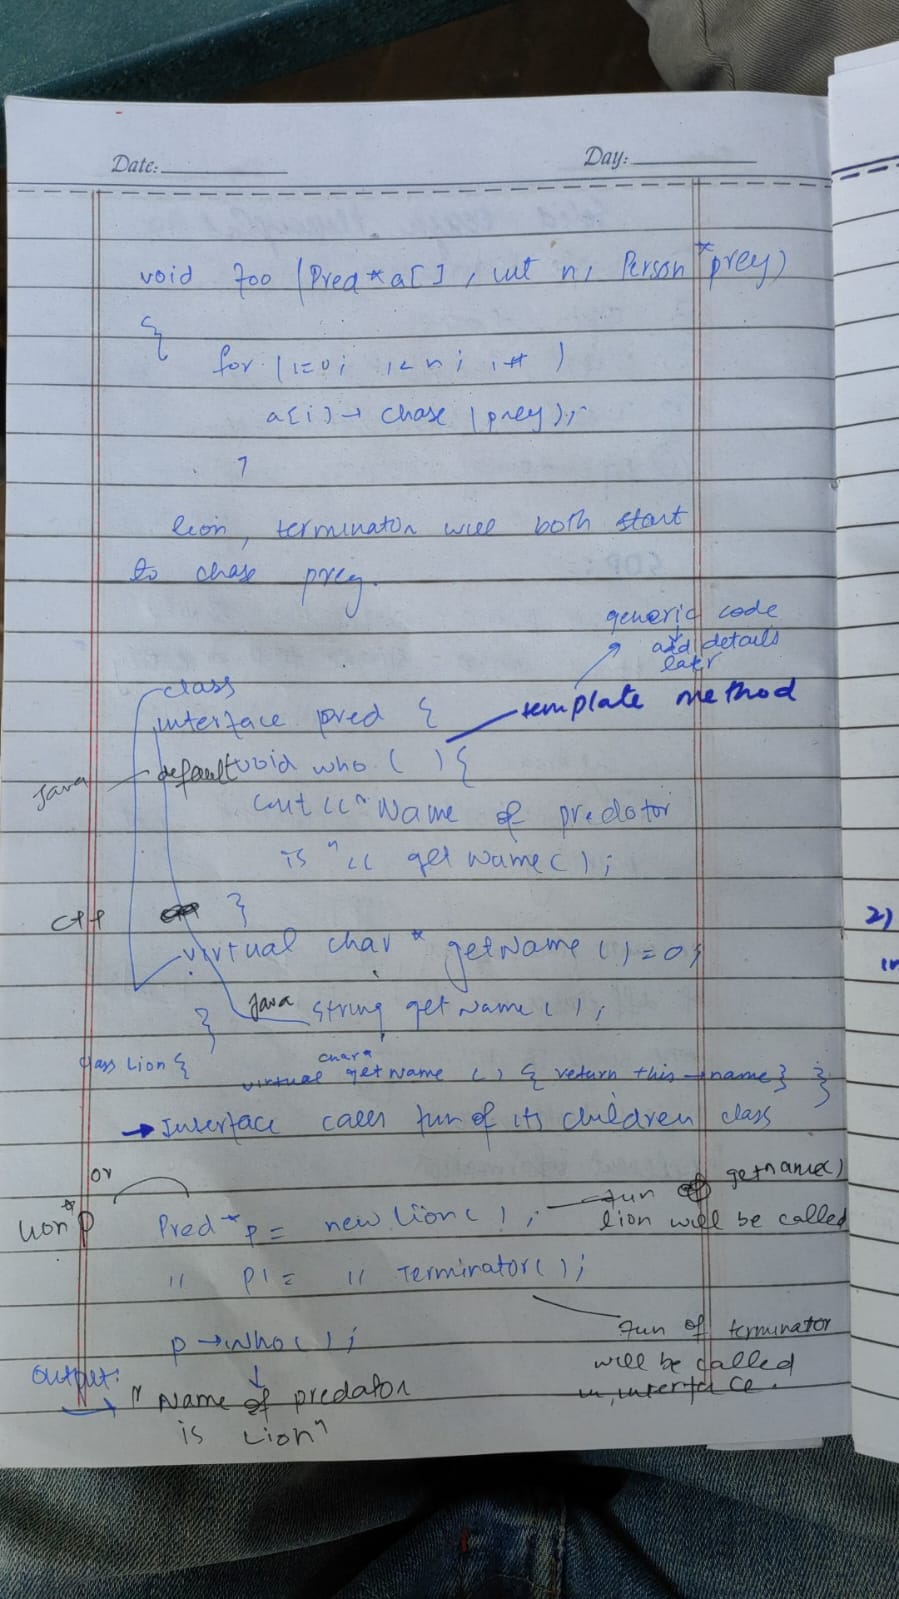 Date:
Day:
void foo (Pred * a[] , int n, Person * prey)
{
for (i=0; i<n; i++ )
a[i] → chase (prey);
}
lion, terminator will both start
to chase prey.
generic code
add details
later
class
interface pred {
template method
Java
default void who ( ) {
cout << " Name of predator
is " << getName ( ) ;
cpp
}
virtual char * getName ( ) = 0;
Java string getName ( ) ;
}
class Lion {
char *
virtual getName ( ) { return this → name } }
→ Interface calls fun of its children class
or
lion * p
Pred * p = new lion ( ) ;
fun of getname( )
lion will be called
" p1 = " Terminator ( ) ;
p → who ( ) ;
fun of terminator
will be called
in interface.
output:
" Name of predator
is Lion "
2)